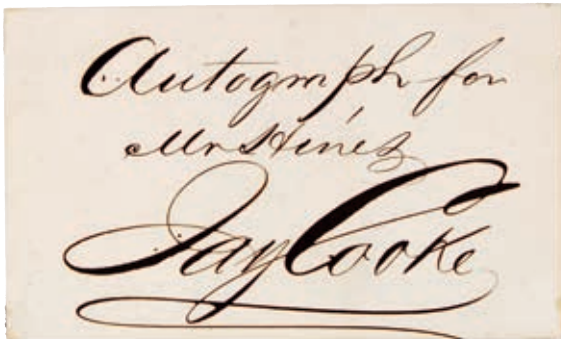 Autograph for
Mr Hines
Jay Cooke